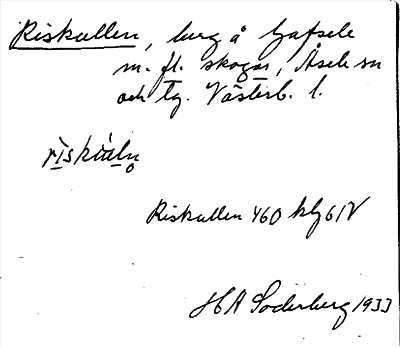 Riskullen, berg å Gafsele
m. fl. skogar, Åsele sn
och tg. Västerb. l.
Riskullen 460 kbl 61V
H A Söderberg 1933